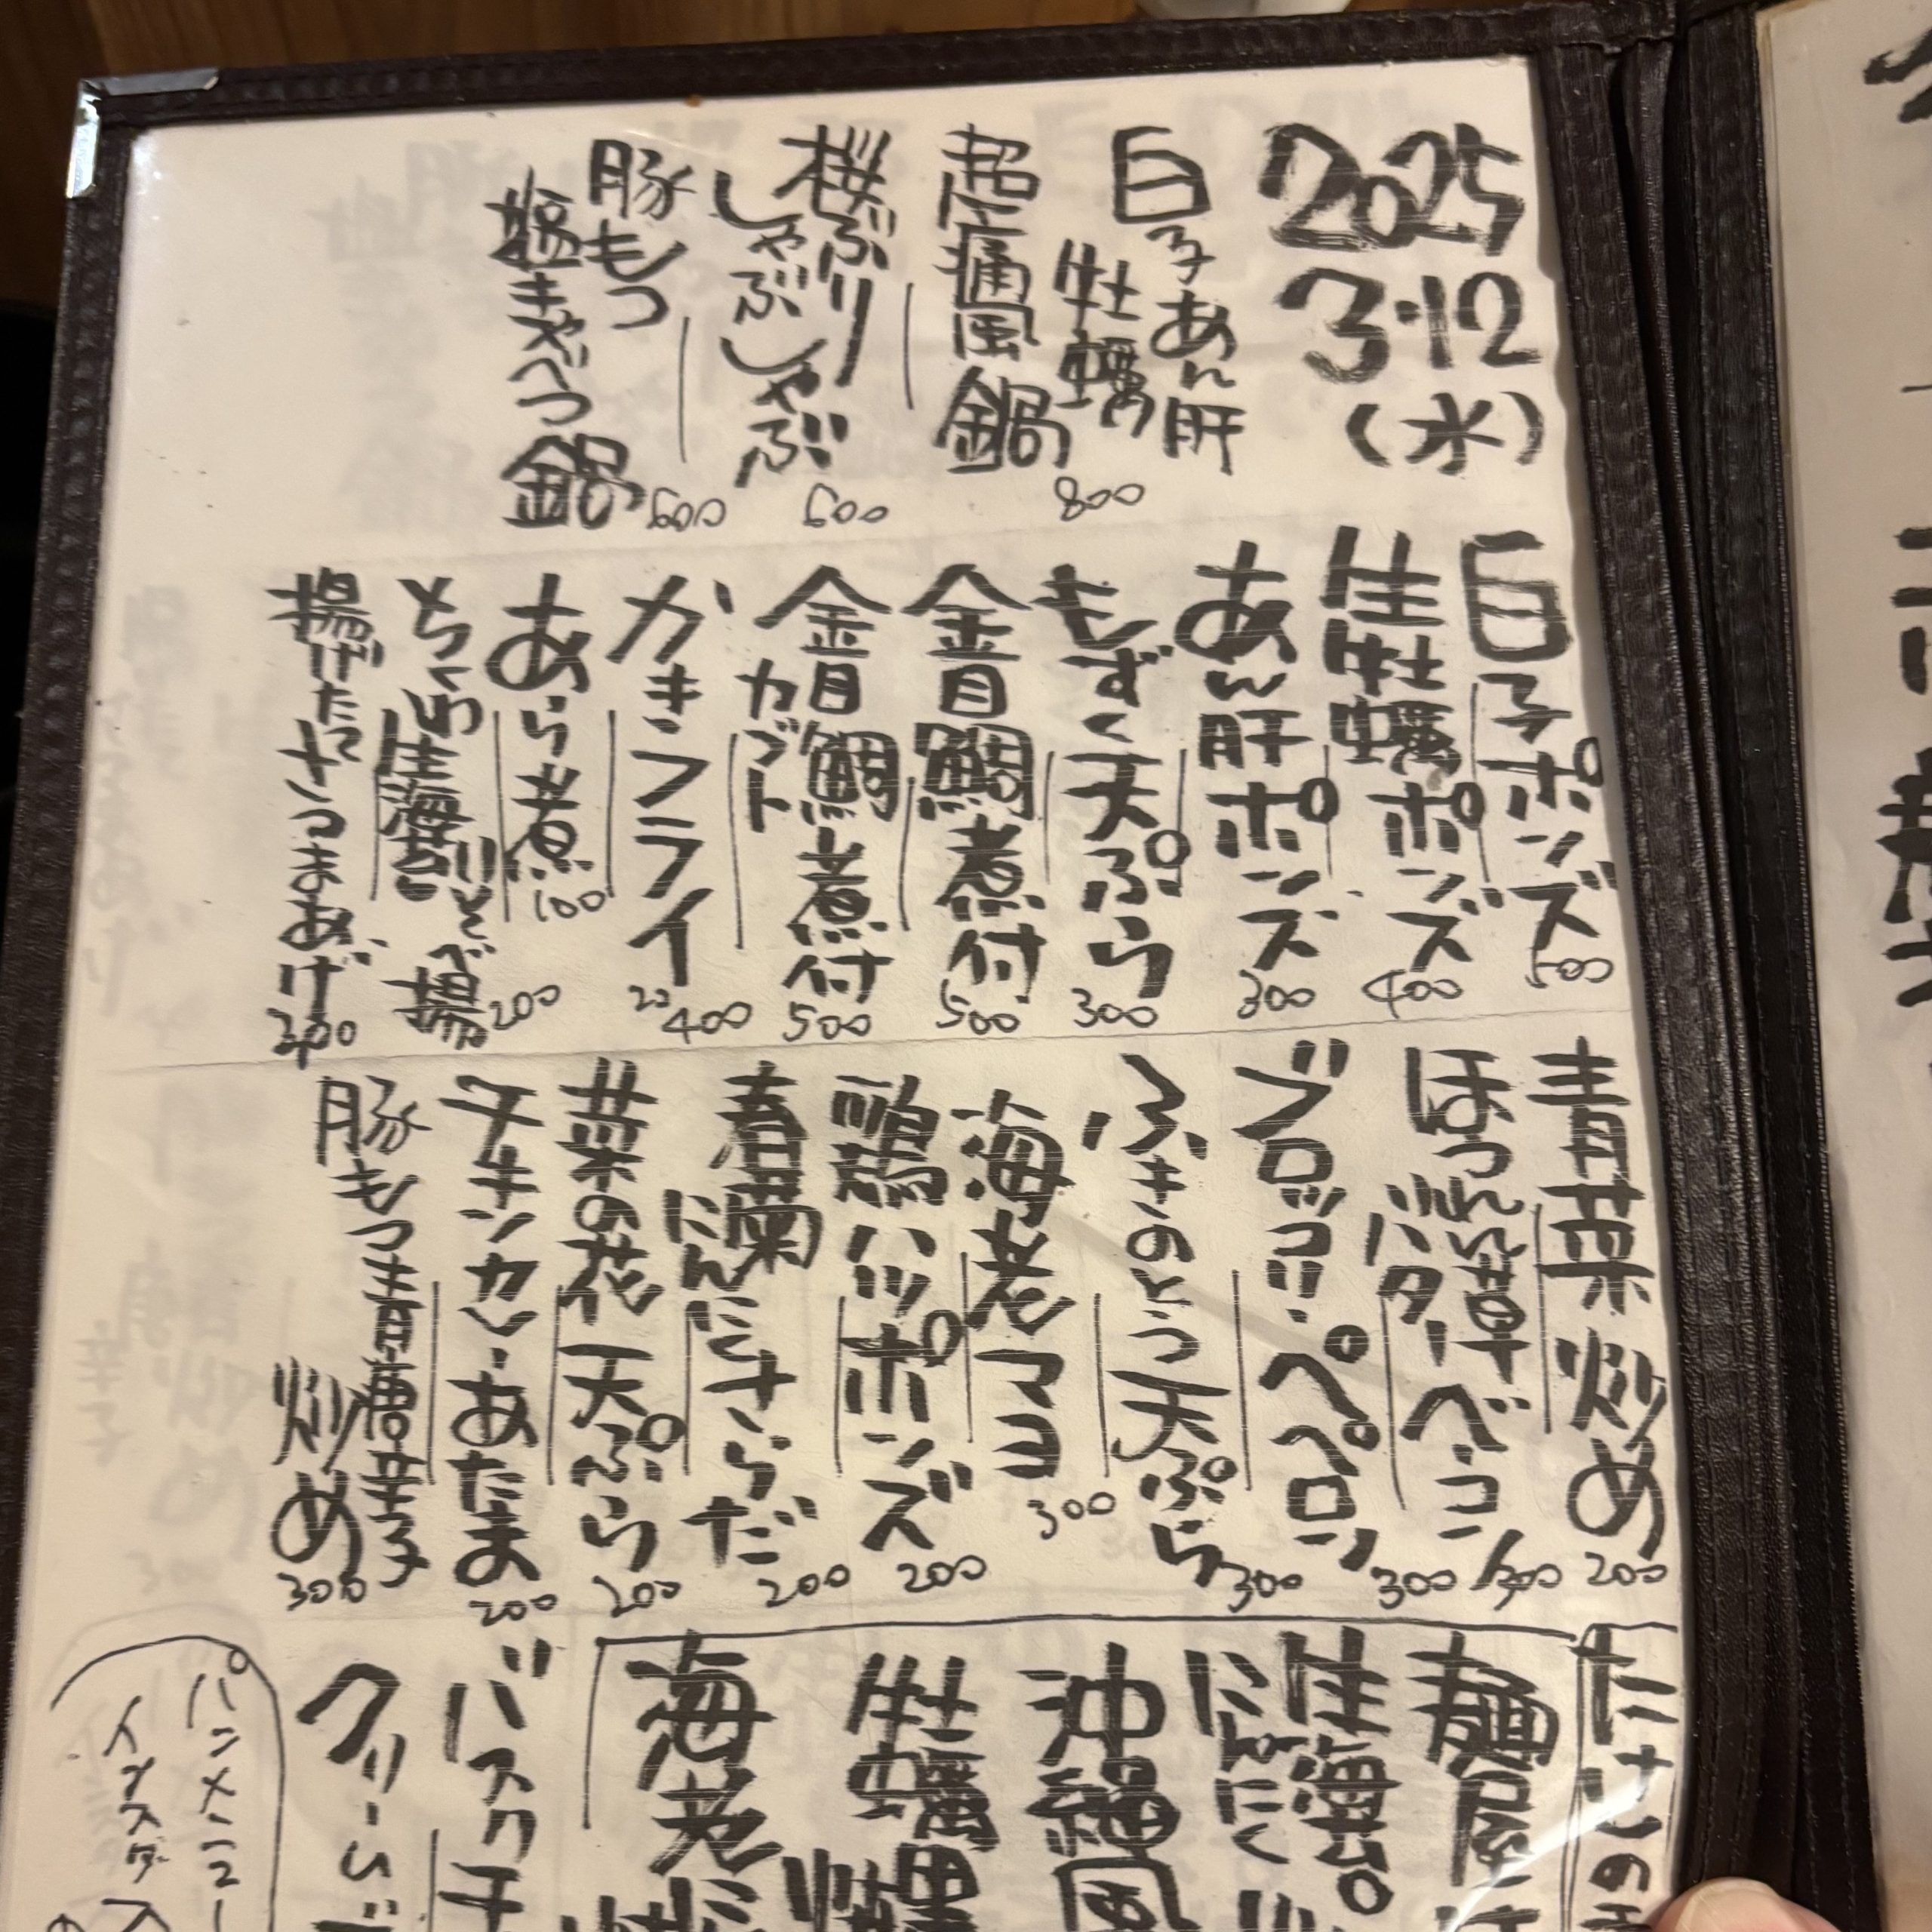 2025
3・12
(水)
白子あん肝
牡蠣
超痛風鍋
800
桜ぶり
しゃぶしゃぶ
600
豚もつ
塩きゃべつ鍋
600
白子ポンズ
500
生牡蠣ポンズ
400
あん肝ポンズ
300
もずく天ぷら
300
金目鯛煮付
500
金目鯛煮付
カブト
500
かきフライ
400
あら煮
100
ちくわ生海苔いそべ揚
200
揚げたてさつまあげ
200
青菜炒め
200
ほうれん草
バターベーコン
300
ブロッコリーペペロン
300
ふきのとう天ぷら
300
海老マヨ
300
鶏ハツポンズ
200
春菊
にんにくさらだ
200
菜の花天ぷら
200
チキンカレーあたま
200
豚もつ青唐辛子
炒め
300
たけしの
麺屋
生海苔
にんにく
沖縄風
牡蠣
海老
バスクチ
クリーム
パンメニュー
インスタ